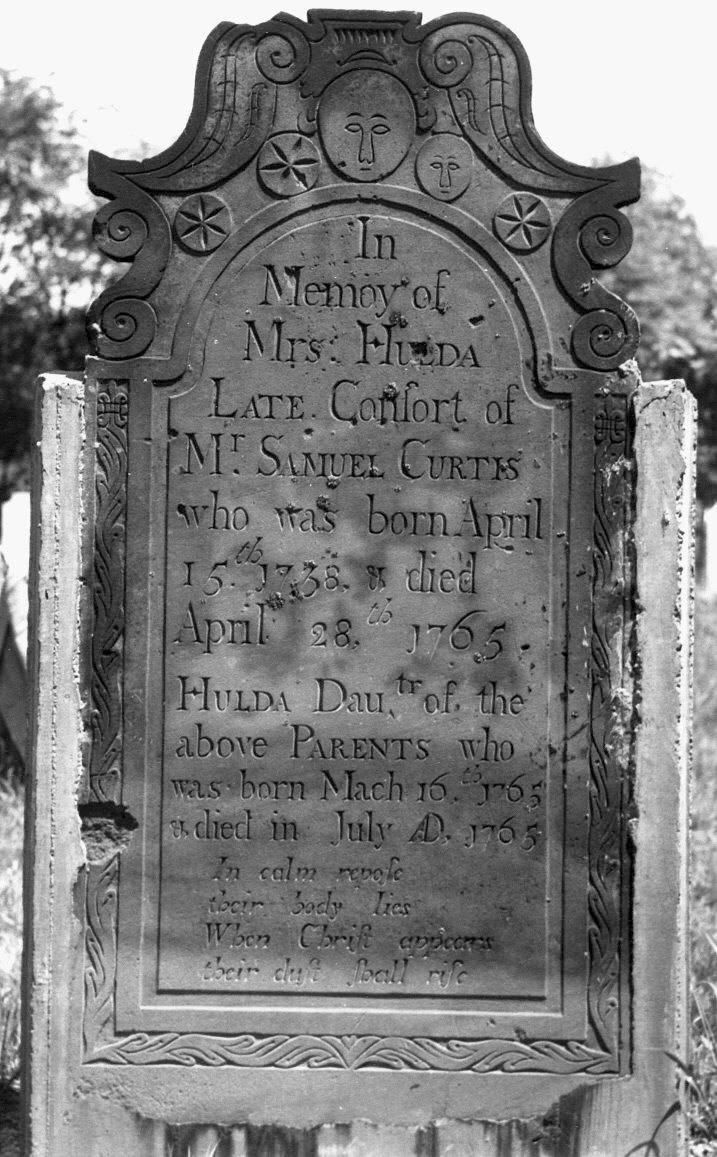 In
Memoy of
Mrs. HULDA
LATE Conſort of
Mr. SAMUEL CURTIS
who was born April
15.th 1738. & died
April 28.th 1765
HULDA Dau,tr of the
above PARENTS who
was born Mach 16.th 1765
& died in July AD, 1765
In calm repoſe
their body lies
When Chriſt appears
their duſt ſhall riſe